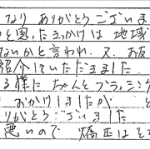 なり ありがとうございま
と思ったきっかけは 地域
ないかと言われ、又、お
紹介していただきました
る様に ちゃんとブラッシング
おかけしましたが と
りがとうございました
悪いので 矯正はそ